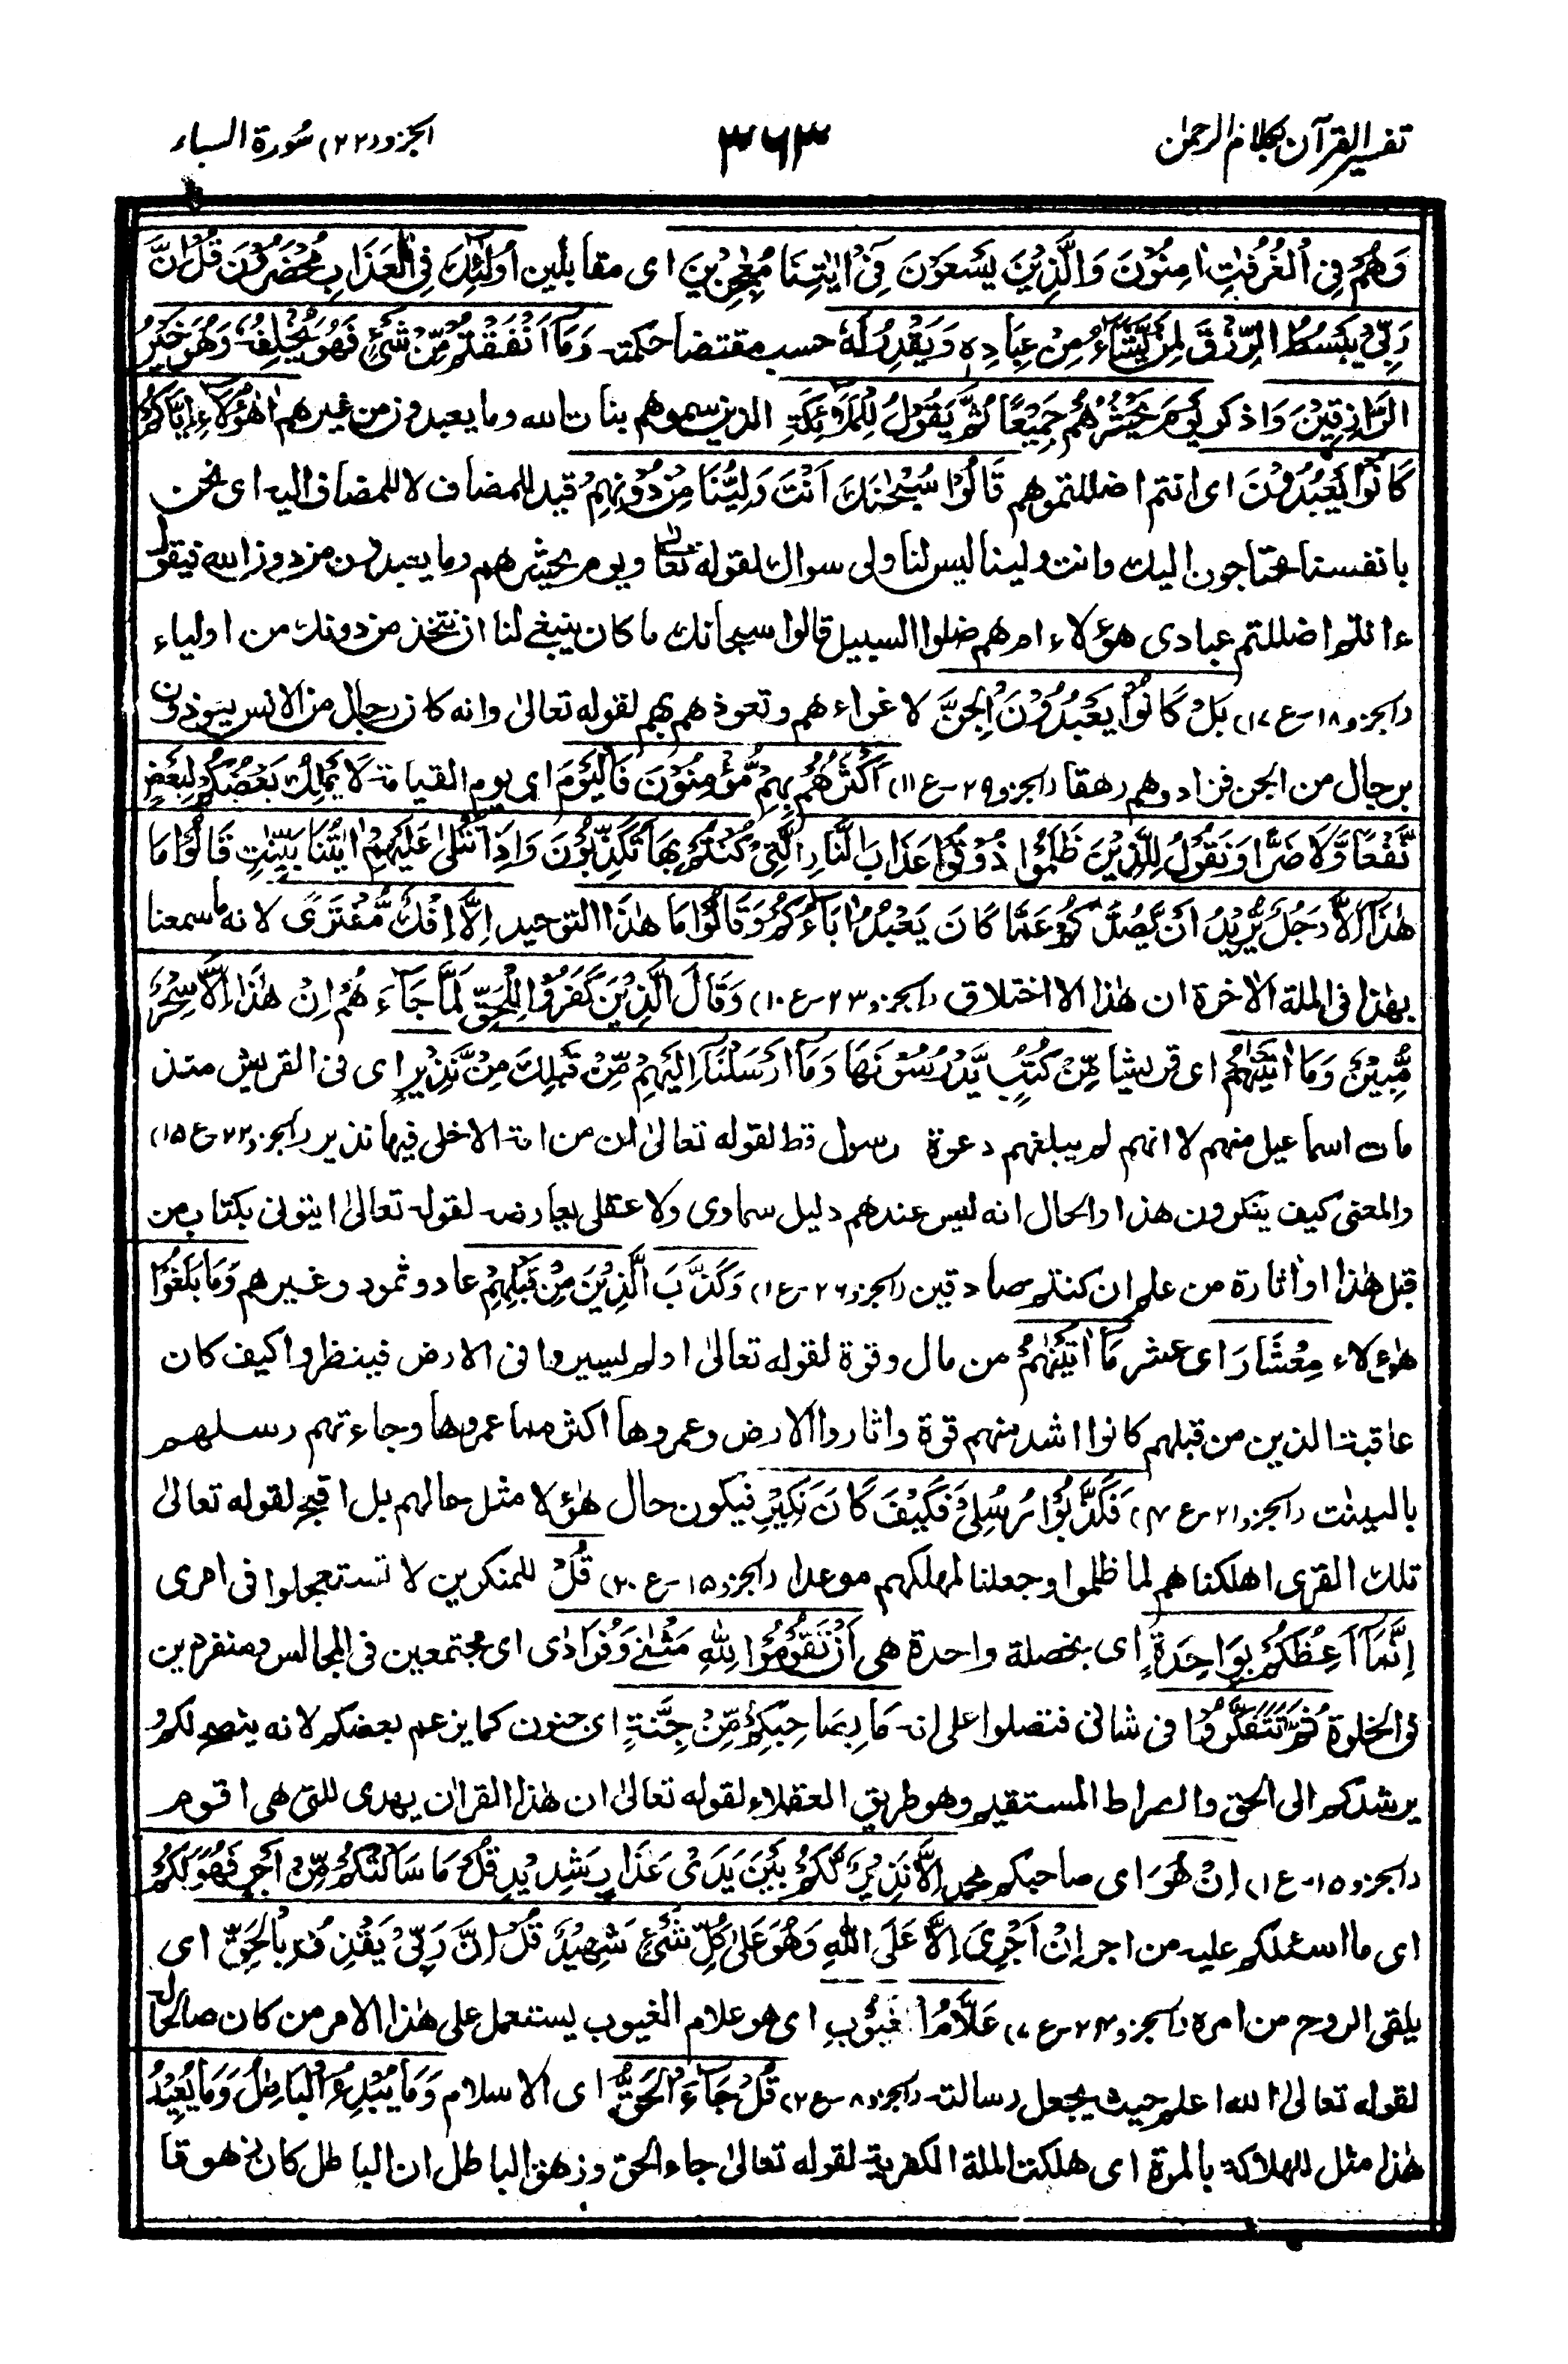 تفسير القرآن بكلام الرحمن
٣٦٣
الجزو (٢٢) سُورة السباء
وَهُمْ فِي الْغُرُفٰتِ اٰمِنُوْنَ وَالَّذِيْنَ يَسْعَوْنَ فِيْ اٰيٰتِنَا مُعٰجِزِيْنَ اى مقابلين اُولٰٓئِكَ فِى الْعَذَابِ مُحْضَرُوْنَ قُلْ اِنَّ
رَبِّيْ يَبْسُطُ الرِّزْقَ لِمَنْ يَّشَآءُ مِنْ عِبَادِهٖ وَيَقْدِرُ لَهٗ حسب مقتضا حكمته وَمَآ اَنْفَقْتُمْ مِّنْ شَىْءٍ فَهُوَ يُخْلِفُهٗ وَهُوَ خَيْرُ
الرّٰزِقِيْنَ وَاذكر يَوْمَ يَحْشُرُهُمْ جَمِيْعًا ثُمَّ يَقُوْلُ لِلْمَلٰٓئِكَةِ الذين سموهم بنات الله وما يعبدون من غيرهم اَهٰٓؤُلَآءِ اِيَّاكُمْ
كَانُوْا يَعْبُدُوْنَ اى انتم اضللتموهم قَالُوْا سُبْحٰنَكَ اَنْتَ وَلِيُّنَا مِنْ دُوْنِهِمْ قيد للمضاف لا للمضاف اليه اى نحن
بانفسنا محتاجون اليك وانت ولينا ليس لنا ولى سواك لقوله تعالىٰ ويوم يحشرهم وما يعبدون من دون الله فيقول
ءانتم اضللتم عبادى هؤلاء ام هم ضلوا السبيل قالوا سبحانك ما كان ينبغى لنا ان نتخذ من دونك من اولياء
(الجزو ١٨-ع ١٧) بَلْ كَانُوْا يَعْبُدُوْنَ الْجِنَّ لاغواءهم وتعوذهم بهم لقوله تعالىٰ وانه كان رجال من الانس يعوذون
برجال من الجن فزادوهم رهقا (الجزو ٢٩-ع ١١) اَكْثَرُهُمْ بِهِمْ مُّؤْمِنُوْنَ فَالْيَوْمَ اى يوم القيامة لَا يَمْلِكُ بَعْضُكُمْ لِبَعْضٍ
نَّفْعًا وَّلَا ضَرًّا وَنَقُوْلُ لِلَّذِيْنَ ظَلَمُوْا ذُوْقُوْا عَذَابَ النَّارِ الَّتِيْ كُنْتُمْ بِهَا تُكَذِّبُوْنَ وَاِذَا تُتْلٰى عَلَيْهِمْ اٰيٰتُنَا بَيِّنٰتٍ قَالُوْا مَا
هٰذَآ اِلَّا رَجُلٌ يُّرِيْدُ اَنْ يَّصُدَّكُمْ عَمَّا كَانَ يَعْبُدُ اٰبَآءُكُمْ وَقَالُوْا مَا هٰذَا التوحيد اِلَّآ اِفْكٌ مُّفْتَرًى لانه ما سمعنا
بهٰذا فى الملة الاٰخرة ان هٰذا الا اختلاق (الجزو ٢٣-ع ١٠) وَقَالَ الَّذِيْنَ كَفَرُوْا لِلْحَقِّ لَمَّا جَآءَهُمْ اِنْ هٰذَآ اِلَّا سِحْرٌ
مُّبِيْنٌ وَمَآ اٰتَيْنٰهُمْ اى قريشا مِّنْ كُتُبٍ يَّدْرُسُوْنَهَا وَمَآ اَرْسَلْنَآ اِلَيْهِمْ مِّنْ قَبْلِكَ مِنْ نَّذِيْرٍ اى فى القريش منذ
مات اسماعيل منهم لا انهم لم يبلغهم دعوة رسول قط لقوله تعالىٰ ان من امة الا خلى فيها نذير (الجزو ٢٢-ع ١٥)
والمعنى كيف ينكرون هذا والحال انه ليس عندهم دليل سماوى ولا عقلى يعارضه لقوله تعالىٰ ايتونى بكتاب من
قبل هٰذا او اثارة من علم ان كنتم صادقين (الجزو ٢٦-ع ١) وَكَذَّبَ الَّذِيْنَ مِنْ قَبْلِهِمْ عاد وثمود وغيرهم وَمَا بَلَغُوْا
هٰؤلاء مِعْشَارَ اى عشر مَآ اٰتَيْنٰهُمْ من مال وقوة لقوله تعالىٰ اولم يسيروا فى الارض فينظروا كيف كان
عاقبة الذين من قبلهم كانوا اشد منهم قوة واثاروا الارض وعمروها اكثر مما عمروها وجاءتهم رسلهم
بالبينٰت (الجزو ٢١-ع ٤) فَكَذَّبُوْا رُسُلِيْ فَكَيْفَ كَانَ نَكِيْرِ فيكون حال هٰؤلا مثل حالهم بل اقبح لقوله تعالىٰ
تلك القرى اهلكناهم لما ظلموا وجعلنا لمهلكهم موعدا (الجزو ١٥-ع ٢٠) قُلْ للمنكرين لا تستعجلوا فى امرى
اِنَّمَآ اَعِظُكُمْ بِوَاحِدَةٍ اى بخصلة واحدة هى اَنْ تَقُوْمُوْا لِلّٰهِ مَثْنٰى وَفُرَادٰى اى مجتمعين فى المجالس ومنفردين
فى الخلوة ثُمَّ تَتَفَكَّرُوْا فى شانى فتصلوا على انه مَا بِصَاحِبِكُمْ مِّنْ جِنَّةٍ اى جنون كما يزعم بعضكم لانه ينصح لكم و
يرشدكم الى الحق والصراط المستقيم وهو طريق العقلاء لقوله تعالىٰ ان هٰذا القراٰن يهدى للتى هى اقوم
(الجزو ١٥-ع ١) اِنْ هُوَ اى صاحبكم محمد اِلَّا نَذِيْرٌ لَّكُمْ بَيْنَ يَدَىْ عَذَابٍ شَدِيْدٍ قُلْ مَا سَاَلْتُكُمْ مِّنْ اَجْرٍ فَهُوَ لَكُمْ
اى ما اسئلكم عليه من اجر اِنْ اَجْرِىَ اِلَّا عَلَى اللّٰهِ وَهُوَ عَلٰى كُلِّ شَىْءٍ شَهِيْدٌ قُلْ اِنَّ رَبِّيْ يَقْذِفُ بِالْحَقِّ اى
يلقى الروح من امره (الجزو ٢٤-ع ٧) عَلَّامُ الْغُيُوْبِ اى هو علام الغيوب يستعمل على هٰذا الامر من كان صالحا
لقوله تعالىٰ الله اعلم حيث يجعل رسالته (الجزو ٨-ع ٢) قُلْ جَآءَ الْحَقُّ اى الاسلام وَمَا يُبْدِئُ الْبَاطِلُ وَمَا يُعِيْدُ
هٰذا مثل للهلاكة بالمرة اى هلكت الملة الكفرية لقوله تعالىٰ جاء الحق وزهق الباطل ان الباطل كان زهوقا